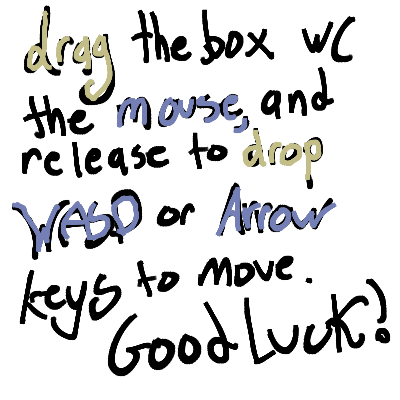 drag the box wc
the mouse, and
release to drop
WASD or Arrow
keys to move.
Good Luck!